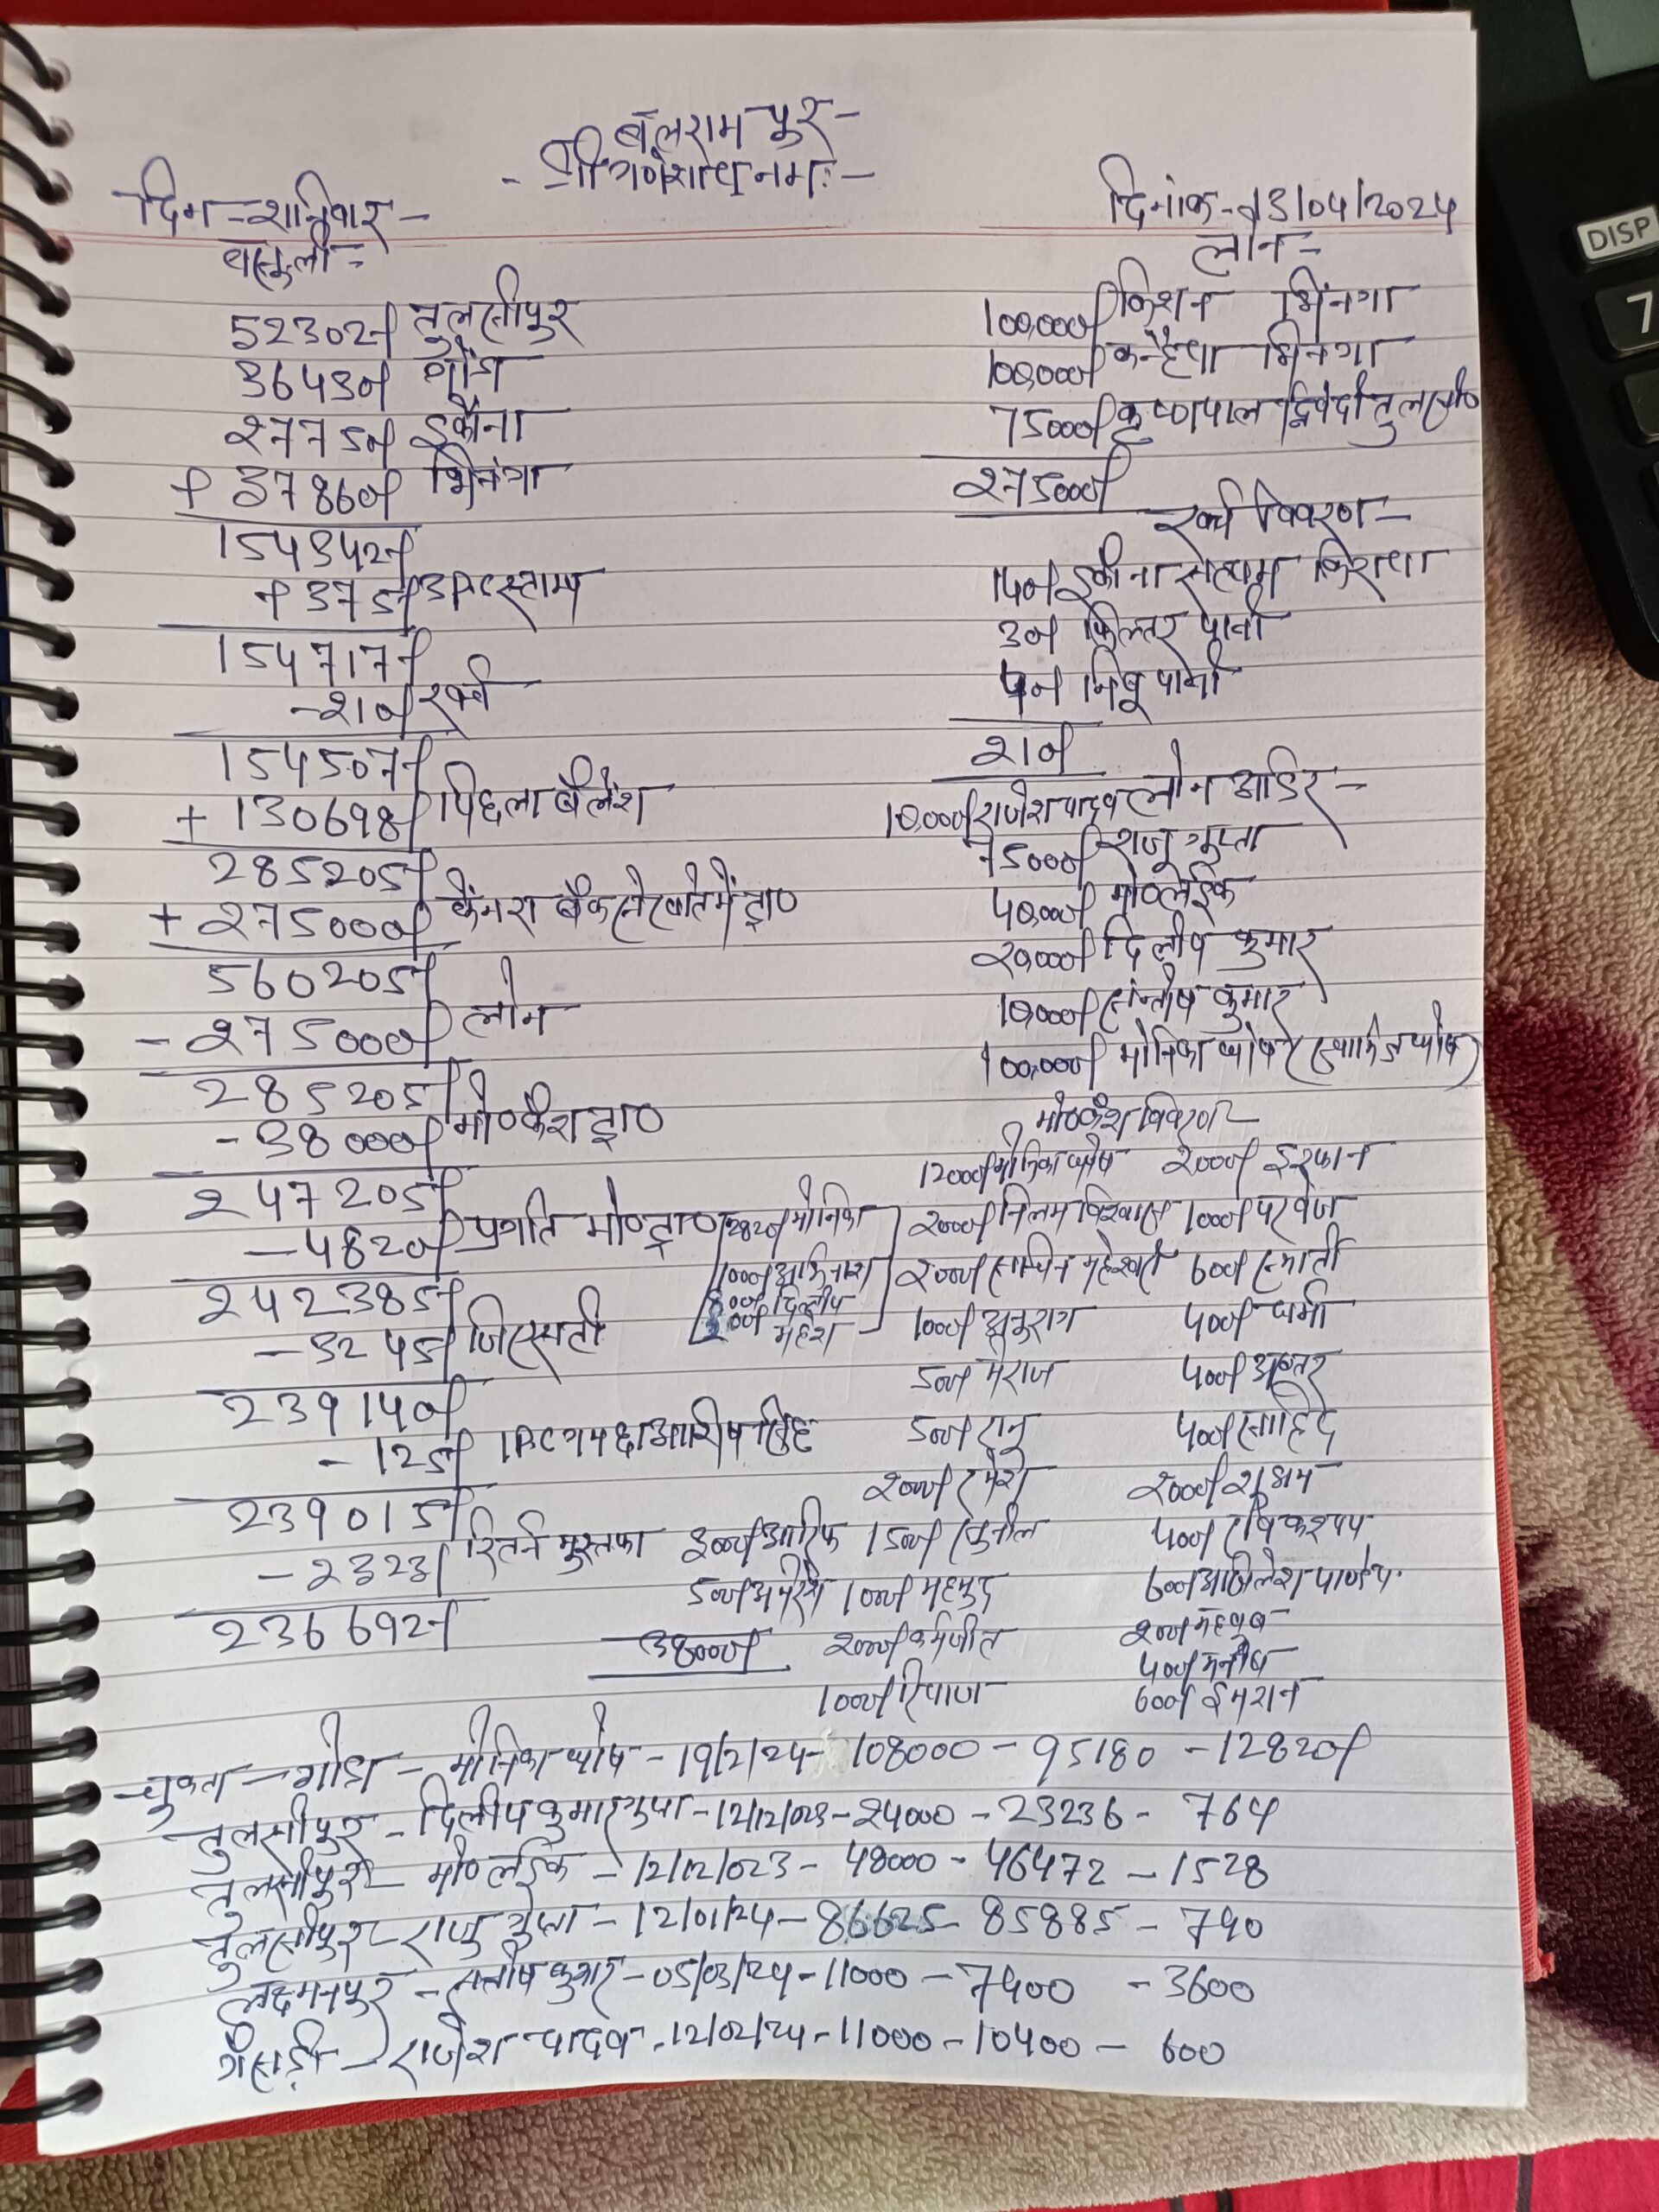 बलरामपुर-
- श्री गणेशाय नमः -
दिन - शनिवार -
दिनांक - 13/04/2024
वसूली -
लोन -
52302/ तुलसीपुर
36430/ गोंडा
27750/ इकौना
+ 37860/ भिनगा
154342/
+ 375/ उपर स्टाम्प
154717/
- 210/ खर्च
154507/
+ 130698/ पिछला बैलेंश
285205/
+ 275000/ केनरा बैंक से खाते में ट्रा०
560205/
- 275000/ लोन
285205/
- 38000/ मो० कैश ट्रा०
247205/
- 4820/ प्रगति मो० ट्रा०
2820/ मोनिका
1000/ अभिनाश
800/ दिलीप
200/ महेश
242385/
- 3245/ जिएसटी
239140/
- 125/ आशिष सिंह
239015/
- 2323/ रिटर्न मुस्तफा
236692/
100,000/ किशन भिनगा
100,000/ कन्हैया भिनगा
75000/ कृष्णपाल द्विवेदी तुलसी०
275000/
खर्च विवरण -
140/ इकौना सेन्टर किराया
30/ फिल्टर पानी
40/ निंबू पानी
210/
लोन आर्डर -
10,000/ राजेश यादव
75000/ राजु गुप्ता
40,000/ मो० लईक
20,000/ दिलीप कुमार
10,000/ संन्तोष कुमार
100,000/ मोनिका घोष
मो० कैश विवरण -
12000/ मोनिका घोष 2000/ इरफान
2000/ निलम विश्वास 1000/ परवेज
2000/ सचिन महेश्वरी 600/ स्माती
1000/ अनुराग 400/ धर्मा
500/ मेराज 400/ अख्तर
500/ रानु 400/ साहिद
2000/ रमेश 2000/ शुभम
3000/ आरिफ 1500/ सुनील 400/ रवि कश्यप
500/ अमरेश 1000/ महमुद 600/ अखिलेश पाण्डेय
38000/ 2000/ कर्मजीत 200/ महबुब
400/ मनोष
1000/ रियाज 600/ ईमरान
चुकता - गोंडा - मोनिका घोष - 19/2/24 - 108000 - 95180 - 12820/
तुलसीपुर - दिलीप कुमार गुप्ता - 12/12/023 - 24000 - 23236 - 764
तुलसीपुर - मो० लईक - 12/12/023 - 48000 - 46472 - 1528
तुलसीपुर - राजु गुप्ता - 12/01/24 - 86625 - 85885 - 740
लक्ष्मनपुर - सन्तोष कुमार - 05/03/24 - 11000 - 7400 - 3600
गैसड़ी - राजेश यादव - 12/02/24 - 11000 - 10400 - 600